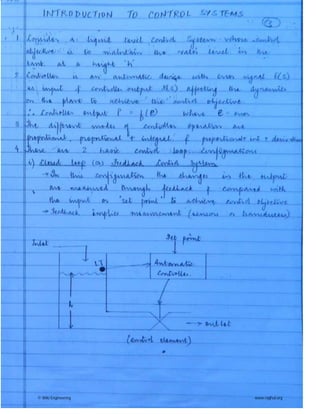 INTRODUCTION TO CONTROL SYSTEMS
1. Consider a liquid level control system whose control
objective is to maintain the water level in the
tank at a height 'h'
2. Controller is an automatic device with error signal E(S)
as input & controller output P(S) affecting the dynamics
on the plant to achieve the control objective.
∴ Controller output P = f(e) where e = error
3. The different modes of controller operation are
proportional, proportional + integral & proportional + int + derivative
4. There are 2 basic control loop configurations
i) Closed loop (or) feedback Control System
→ In this configuration the changes in the output
are measured through feedback & compared with
the input or 'set point' to achieve control objective
→ Feedback implies measurement (sensors or transducers)
Inlet
Set point
LT
Automatic
Controller
h
→ outlet
(Control element)
© Wiki Engineering
www.raghul.org